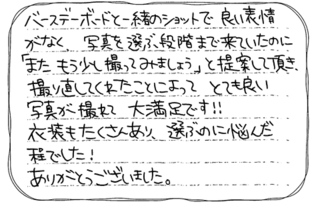 バースデーボードと一緒のショットで 良い表情
がなく、写真を選ぶ段階まで来ていたのに
「また もう少し撮ってみましょう」と提案して頂き、
撮り直してくれたことによって とても良い
写真が撮れて 大満足です!!
衣装もたくさんあり、選ぶのに悩んだ
程でした!
ありがとうございました。